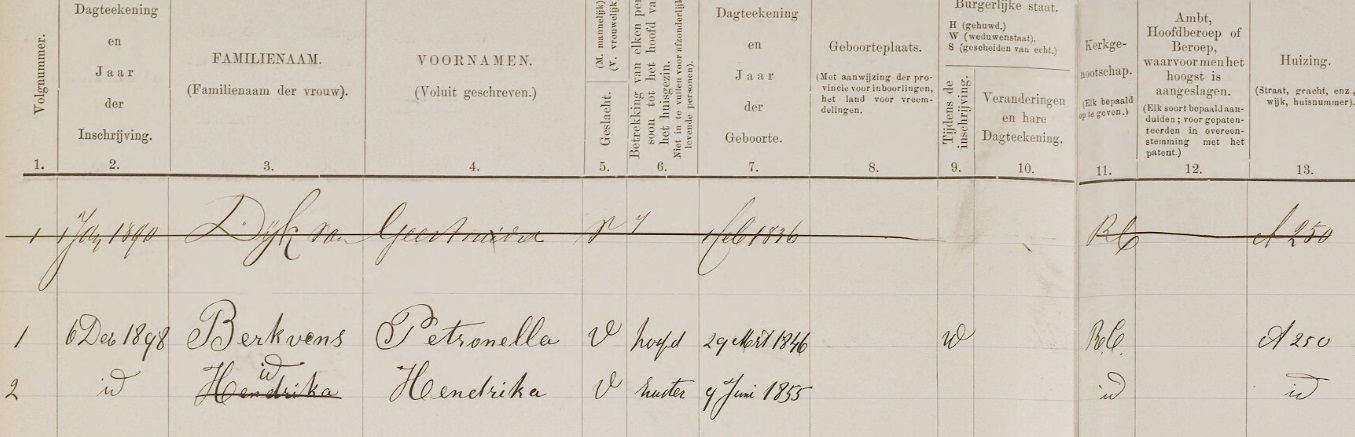 Volgnummer.
Dagteekening
en
Jaar
der
Inschrijving.
FAMILIENAAM.
(Familienaam der vrouw).
VOORNAMEN.
(Voluit geschreven.)
Geslacht. (M. mannelijk)
(V. vrouwelijk)
Betrekking van elken per-
soon tot het hoofd va
het huisgezin.
Niet in te vullen voor afzonderlijk
levende personen).
Dagteekening
en
Jaar
der
Geboorte.
Geboorteplaats.
(Met aanwijzing der pro-
vincie voor inboorlingen,
het land voor vreem-
delingen.
Burgerlijke staat.
H (gehuwd.)
W (weduwenstaat).
S (gescheiden van echt.)
Tijdens de
inschrijving.
Veranderingen
en hare
Dagteekening.
Kerkge-
nootschap.
(Elk bepaald
op te geven.)
Ambt,
Hoofdberoep of
Beroep,
waarvoor men het
hoogst is
aangeslagen.
(Elk soort bepaald aan-
duiden; voor gepaten-
teerden in overeen-
stemming met het
patent.)
Huizing.
(Straat, gracht, enz.,
wijk, huisnummer).
1. 2. 3. 4. 5. 6. 7. 8. 9. 10. 11. 12. 13.
1 1 Jan 1890 Dijk van V 1 Feb 1836 RC A 250
1 6 Dec 1898 Berkvens Petronella V hoofd 29 Mrt 1846 W R.C. A 250
id
2 id Hendrika Hendrika V zuster 9 Juni 1855 id id